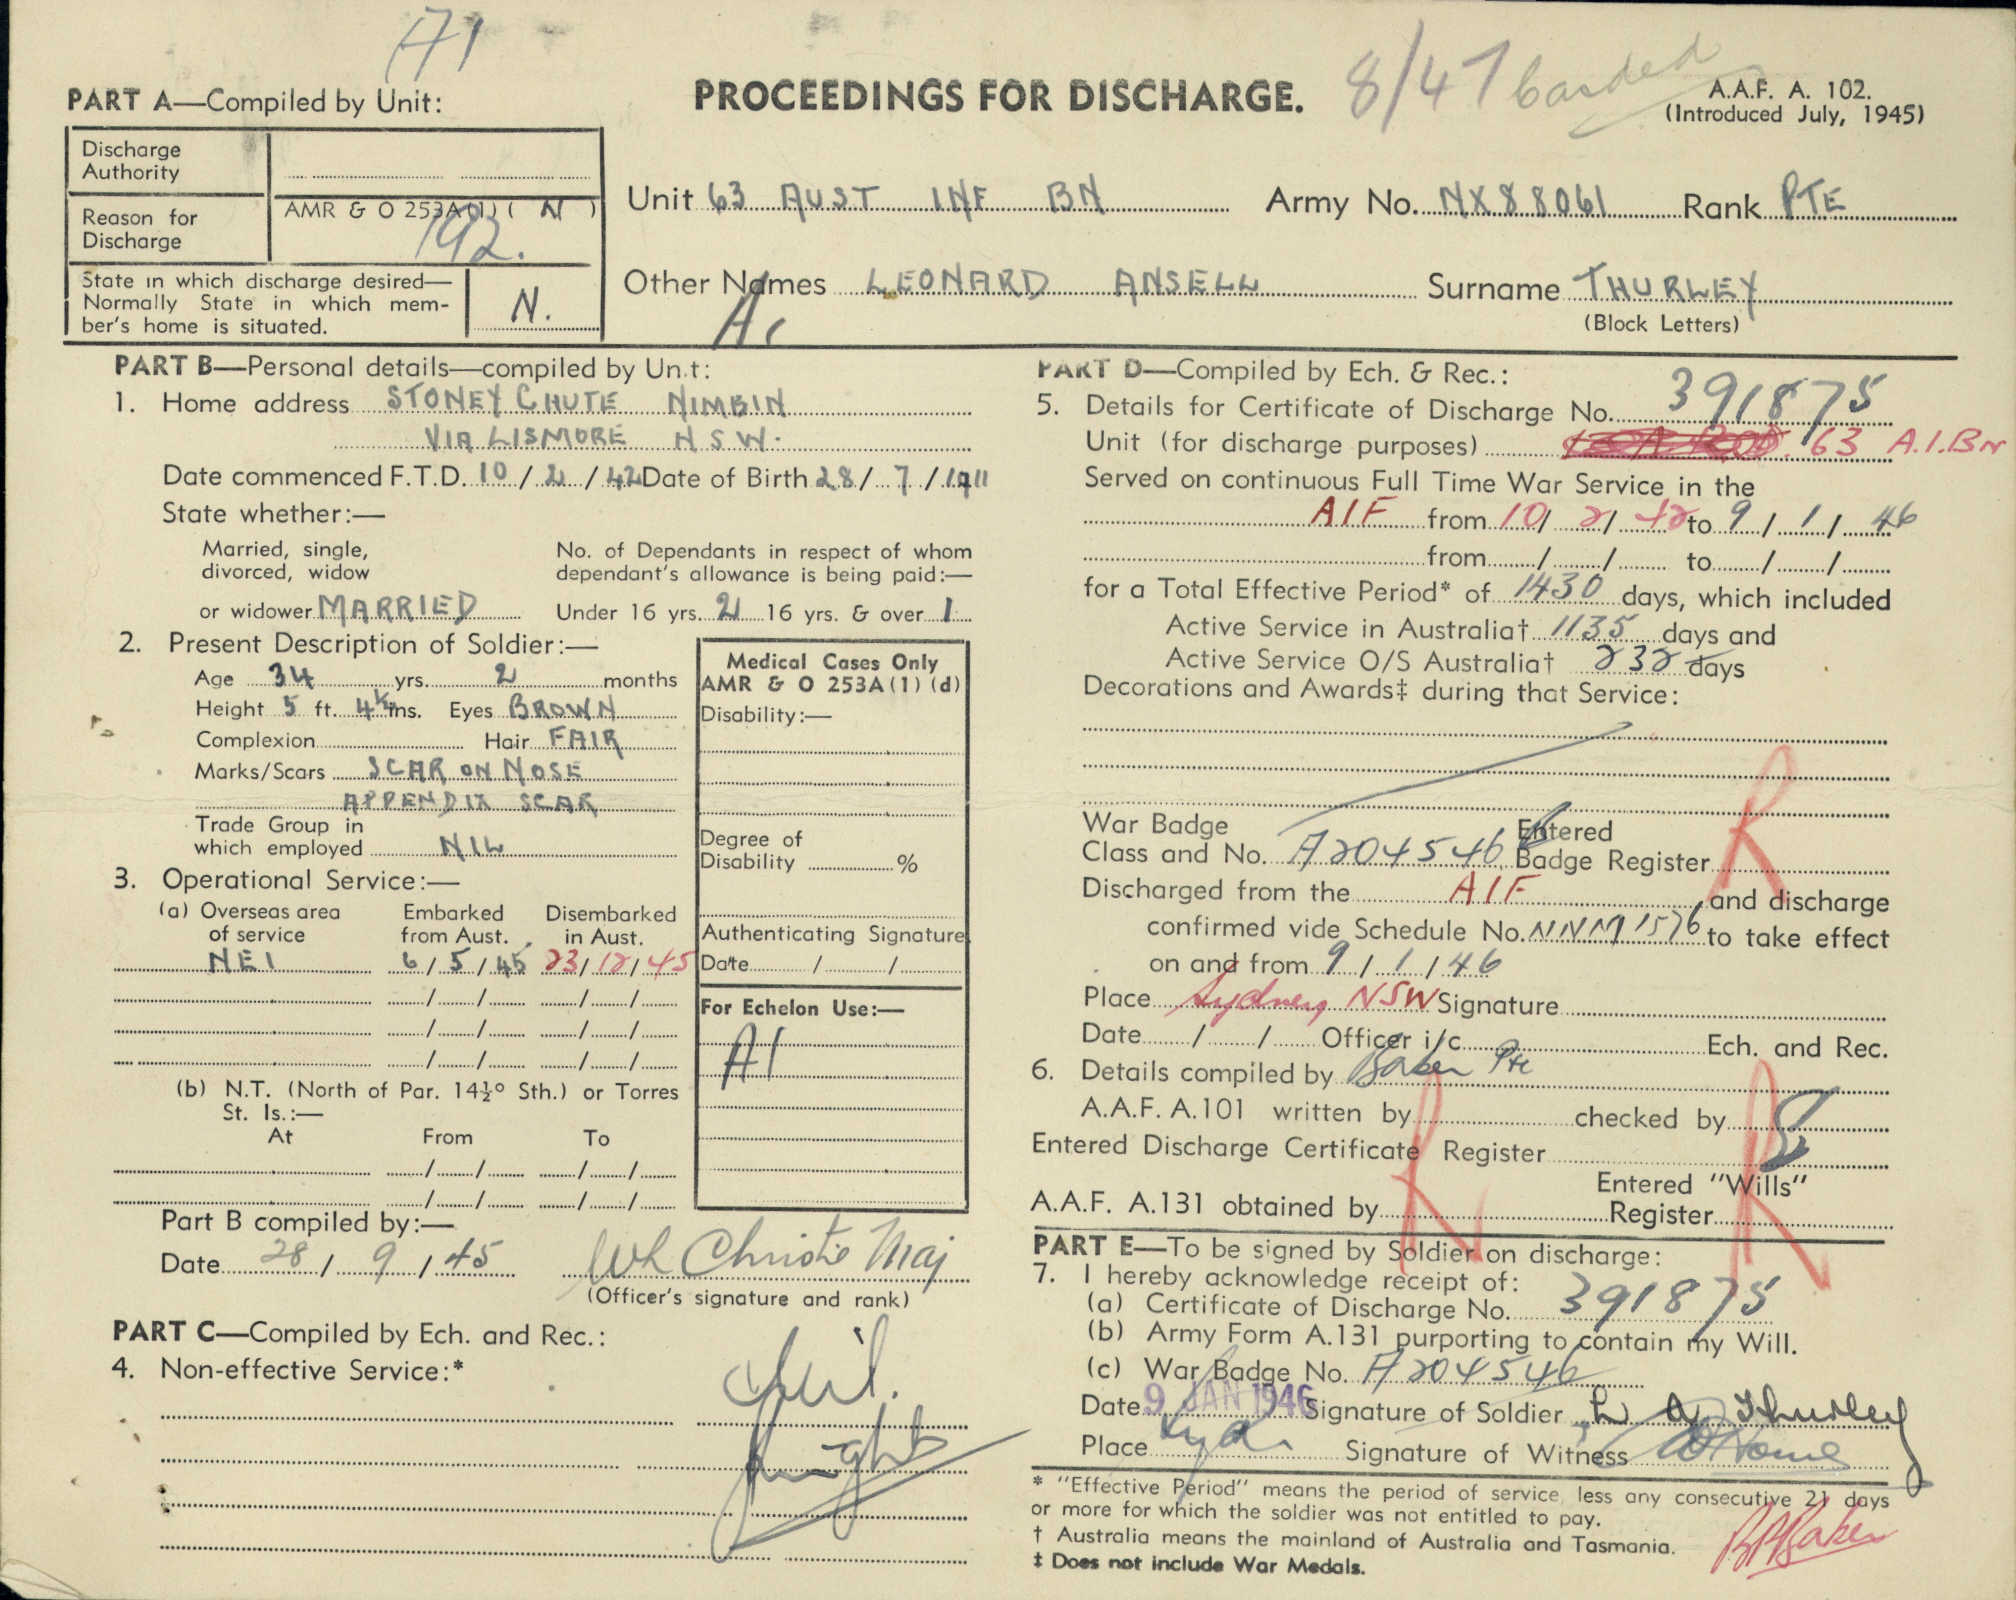 A1
PART A—Compiled by Unit:
PROCEEDINGS FOR DISCHARGE.
8/47 carded
A.A.F. A. 102.
(Introduced July, 1945)
Discharge
Authority
Reason for
Discharge
AMR & O 253A(1) ( N )
192.
State in which discharge desired—
Normally State in which mem-
ber's home is situated.
N.
Unit 63 AUST INF BN Army No. NX88061 Rank PTE
Other Names LEONARD ANSELL Surname THURLEY
(Block Letters)
A1
PART B—Personal details—compiled by Unit:
1. Home address STONEY CHUTE NIMBIN
VIA LISMORE NSW.
Date commenced F.T.D. 10/2/42 Date of Birth 28/7/1911
State whether:—
Married, single,
divorced, widow
or widower MARRIED
No. of Dependants in respect of whom
dependant's allowance is being paid:—
Under 16 yrs. 2 16 yrs. & over 1
2. Present Description of Soldier:—
Age 34 yrs. 2 months
Height 5 ft. 4½ ins. Eyes BROWN
Complexion Hair FAIR
Marks/Scars SCAR ON NOSE
APPENDIX SCAR
Trade Group in
which employed NIL
3. Operational Service:—
(a) Overseas area
of service
Embarked
from Aust.
Disembarked
in Aust.
NEI 6/5/45 23/12/45
/ / / /
/ / / /
/ / / /
(b) N.T. (North of Par. 14½° Sth.) or Torres
St. Is.:—
At From To
/ / / /
/ / / /
Part B compiled by:—
Date 28/9/45 Wh Christie Maj
(Officer's signature and rank)
Medical Cases Only
AMR & O 253A(1)(d)
Disability:—
Degree of
Disability %
Authenticating Signature
Date / /
For Echelon Use:—
A1
PART C—Compiled by Ech. and Rec.:
4. Non-effective Service:*
Nil.
PART D—Compiled by Ech. & Rec.:
5. Details for Certificate of Discharge No. 391875
Unit (for discharge purposes) 63 A.I.Bn
Served on continuous Full Time War Service in the
AIF from 10/2/42 to 9/1/46
from / / to / /
for a Total Effective Period* of 1430 days, which included
Active Service in Australia† 1135 days and
Active Service O/S Australia† 232 days
Decorations and Awards‡ during that Service:
War Badge
Class and No. A204546 Entered
Badge Register R
Discharged from the AIF and discharge
confirmed vide Schedule No. NNM 1576 to take effect
on and from 9/1/46
Place Sydney NSW Signature
Date / / Officer i/c Ech. and Rec.
6. Details compiled by Baker Pte
A.A.F. A.101 written by checked by
Entered Discharge Certificate Register
A.A.F. A.131 obtained by R Entered "Wills"
Register R
PART E—To be signed by Soldier on discharge:
7. I hereby acknowledge receipt of:
(a) Certificate of Discharge No. 391875
(b) Army Form A.131 purporting to contain my Will.
(c) War Badge No. A204546
Date 9 JAN 1946 Signature of Soldier L A Thurley
Place Syd. Signature of Witness
* "Effective Period" means the period of service less any consecutive 21 days
or more for which the soldier was not entitled to pay.
† Australia means the mainland of Australia and Tasmania.
‡ Does not include War Medals.
Baker